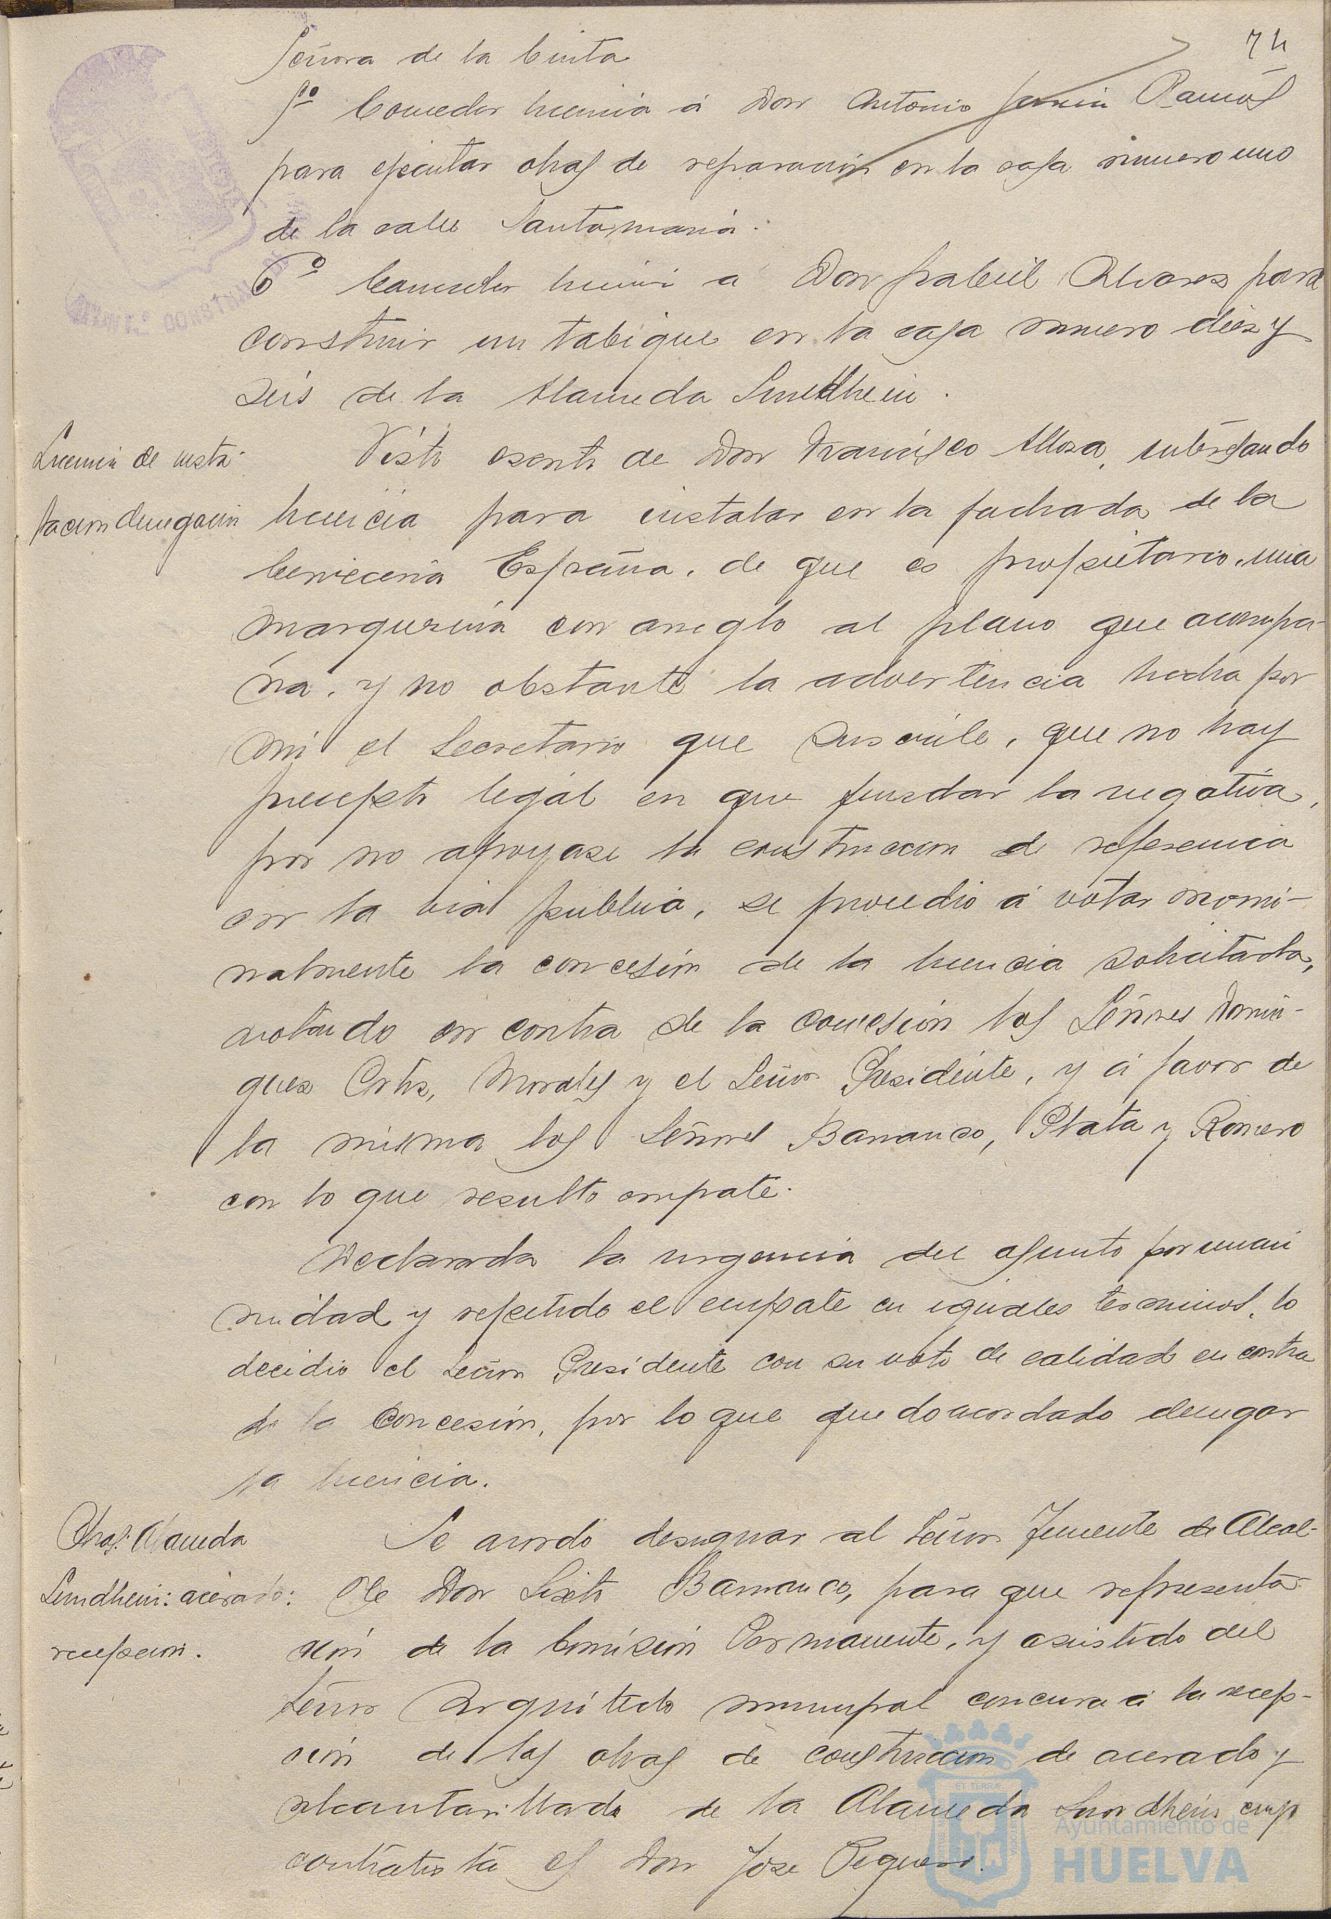 74
Señora de la Cinta
5º Conceder licencia á Don Antonio Ramos
para ejecutar obras de reparación en la casa número uno
de la calle Santa María.
6º Conceder licencia a Don Gabriel Alvarez para
construir un tabique en la casa número diez y
seis de la Alameda Sundheim.
Licencia de insta-
lacion denegacion
Visto escrito de Don Francisco Allosa, interesando
licencia para instalar en la fachada de la
Cerveceria España, de que es propietario, una
marquesina con arreglo al plano que acompa-
ña, y no obstante la advertencia hecha por
mi el Secretario que suscribe, que no hay
precepto legal en que fundar la negativa,
por no apoyase la construccion de referencia
en la via publica, se procedio á votar nomi-
nalmente la concesión de la licencia solicitada,
votando en contra de la concesión los Señores Domin-
guez Ortiz, Morales y el Señor Presidente, y á favor de
la misma los Señores Barranco, Plata y Romero
con lo que resulto empate.
Declarada la urgencia del asunto por unani
midad y repetido el empate en iguales terminos, lo
decidio el Señor Presidente con su voto de calidad en contra
de la Concesión, por lo que quedo acordado denegar
la licencia.
Obras: Alameda
Sundheim: acerado:
recepcion.
Se acordo designar al Señor Teniente de Alcal-
de Don Sixto Barranco, para que representa-
ción de la Comisión Permanente, y asistido del
Señor Arquitecto municipal concurra á la recep-
ción de las obras de construccion de acerado y
alcantarillado de la Alameda Sundheim cuyo
contratista es Don Jose Peguero.
Ayuntamiento de
HUELVA